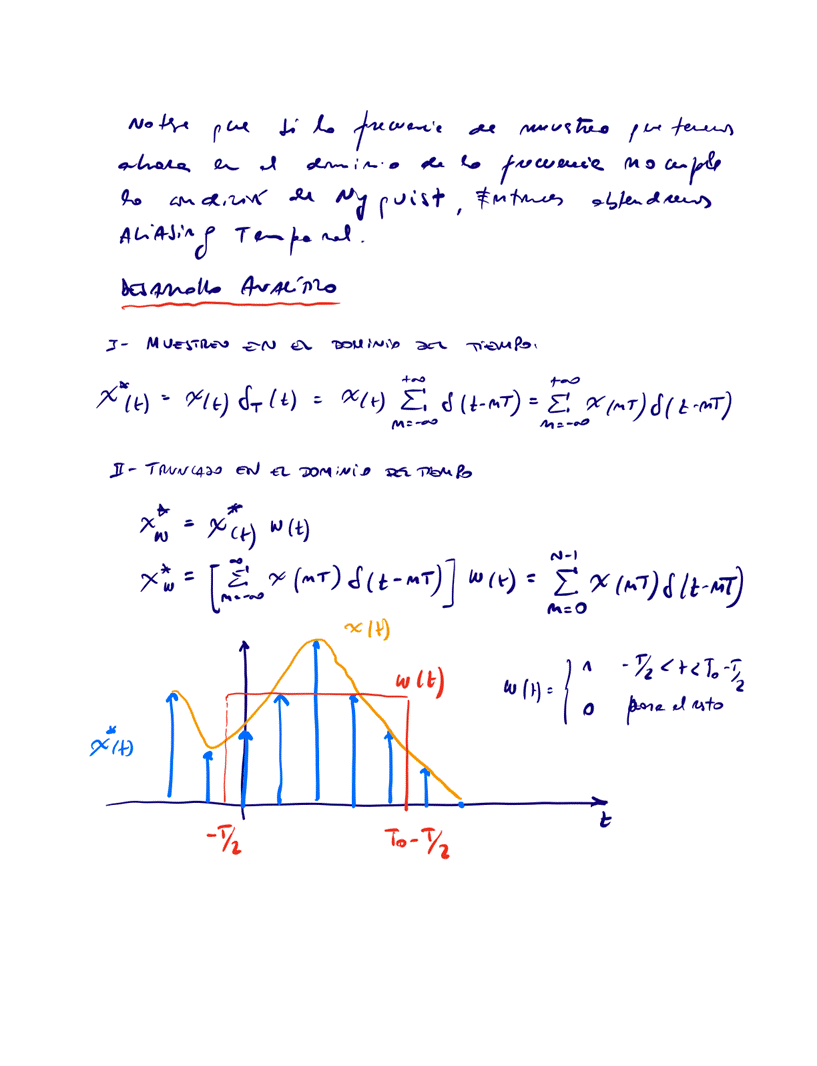 Notese que si la frecuencia de muestreo que tenemos
ahora en el dominio de la frecuencia no cumple
la condición de Nyquist, Entonces obtendremos
ALIASING Temporal.
DESARROLLO ANALÍTICO
I- MUESTREO EN EL DOMINIO DEL TIEMPO:
x*(t) = x(t) δ_T(t) = x(t) Σ_{m=-∞}^{+∞} δ(t-mT) = Σ_{m=-∞}^{+∞} x(mT) δ(t-mT)
II- TRUNCADO EN EL DOMINIO DEL TIEMPO
x*_w = x*(t) w(t)
x*_w = [Σ_{m=-∞}^{∞} x(mT) δ(t-mT)] w(t) = Σ_{m=0}^{N-1} x(mT) δ(t-mT)
x(t)
w(t)
w(t) = { 1 -T/2 < t < T₀-T/2
0 para el resto
x*(t)
t
-T/2
T₀-T/2